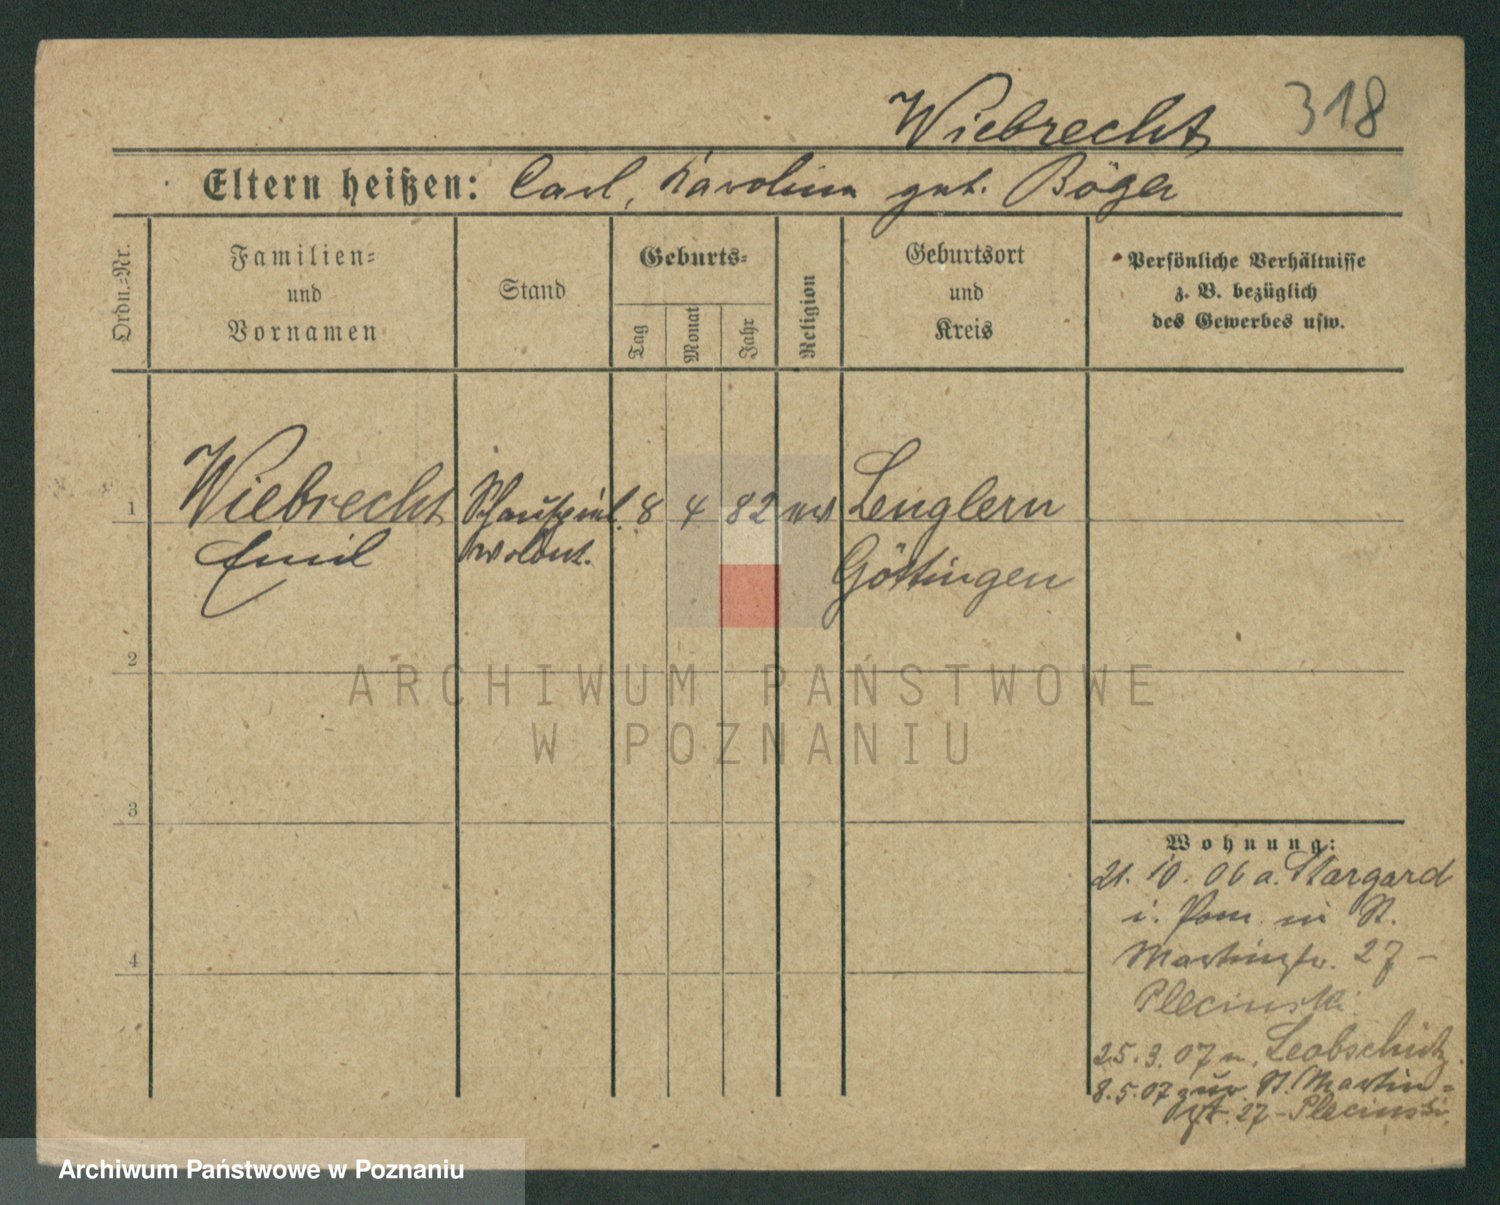 Wiebrecht 318
Eltern heißen: Carl, Karolina geb. Böger
Ordn.-Nr.
Familien-
und
Vornamen
Stand
Geburts-
Tag
Monat
Jahr
Religion
Geburtsort
und
Kreis
Persönliche Verhältnisse
z. B. bezüglich
des Gewerbes usw.
1 Wiebrecht Schauspiel. 8 4 82 ev Lenglern
Emil Göttingen
2
ARCHIWUM PAŃSTWOWE
W POZNANIU
3
4
Wohnung:
21. 10. 06 a. Stargard
i. Pom in St.
Martinstr. 27 –
Plecinski
25.3.07 n. Leobschütz
8.5.07 zur. St. Martin-
str. 27 – Plecinski
Archiwum Państwowe w Poznaniu